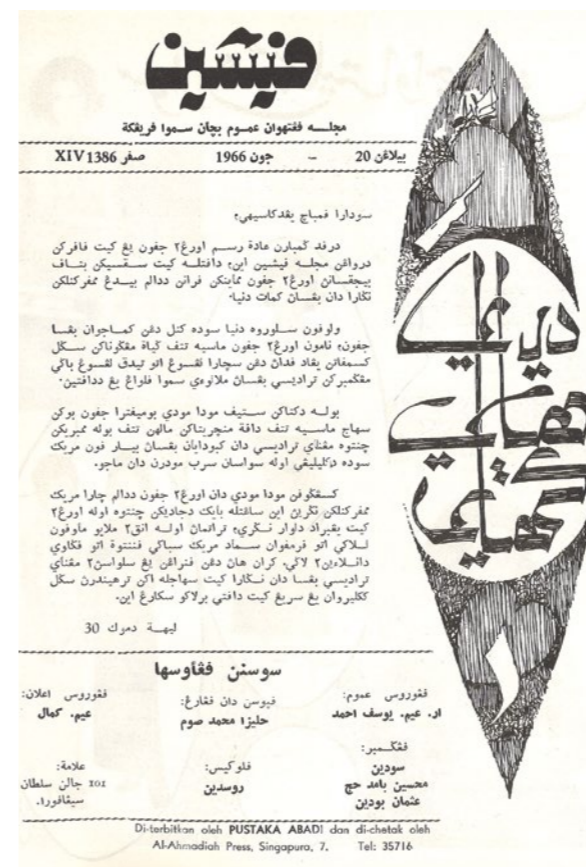 فيشين
مجلــه ڤڠتهوان عموم بچان سموا ڤريڠكة
بيلاڠن 20 – جون 1966 صفر 1386 XIV
سودارا ڤمباچ يڠدكاسيهي؛
درڤد ݢمبارن عادة رسم اورڠ٢ جڤون يڠ كيت ڤاڤركن
دروڠن مجلــه فيشين اين؛ داڤتلــه كيت ســقسيكن بتــاڤ
بيجقسانن اورڠ٢ جڤون ڤراڽن ددالم بيــدڠ ممڤركنلكن
نݢارا دان بڠسان كمات دنيا.
ولوڤون ســلوروه دنيا سوده كنل دڠن كمــاجوان بڠسا
جڤون؛ نامون اورڠ٢ جڤون ماسيه تتڤ ݢياة مڠݢوناكن ســݢل
كسمڤاتن يڠاد ڤداڽ دڠن سچارا لڠسوڠ اتو تيدق لڠسوڠ باݢي
مڠݢمبركن تراديسي بڠساڽ ملالوءي سموا ڤلواڠ يڠ ددافتين.
بولــه دكتاكن ســتيڤ مودا مودي بوميڤترا جڤون بوكن
سهاج ماســيه تتڤ داڤة منچريتاكن مالهن تتڤ بوله ممبريكن
چنتوه مڠناي تراديسي دان كبوداياءن بڠساڽ بيــار ڤون مريك
سوده دكليليڠي اوله سواسان سرب مودرن دان ماجو.
كسڠݢوڤن مودا مودي دان اورڠ٢ جڤون ددالم چارا مريك
ممڤركنلكن نݢرين اين ساڠتله بايك دجاديكن چنتوه اوله اورڠ٢
كيت يڠبراد دلوار نݢري؛ تراتماڽ اولــه انق٢ ملايو ماوڤون
للاكي اتو ڤرمڤوان ســماد مريك سباݢي ڤننتوة اتو ڤݢاوي
دان لاءين٢ لاݢي. كران هاڽ دڠن ڤنراڠن يڠ سلواس٢ مڠناي
تراديسي بڠسا دان نݢــارا كيت سهاجله اكن ترهيندرڽ سݢل
ككليروان يڠ سريڠ كيت داڤتي برلاكو سكارڠ اين.
ليهــة دموك 30
سوسنن ڤڠاوسها
ڤڠوروس عموم:
ار. عيم. يوسف احمد
ڤڠݢــمبر:
سودين
محسين بامد حج
عثمان بودين
ڤيوسن دان ڤڠارڠ:
حليزا محمد صوم
ڤلوكيس:
روسدين
ڤڠوروس اعلان:
عيم. كمال
علامة:
101 جالن سلطان
سيڠاڤورا.
Di-terbitkan oleh PUSTAKA ABADI dan di-chetak oleh
Al-Ahmadiah Press, Singapura, 7. Tel: 35716